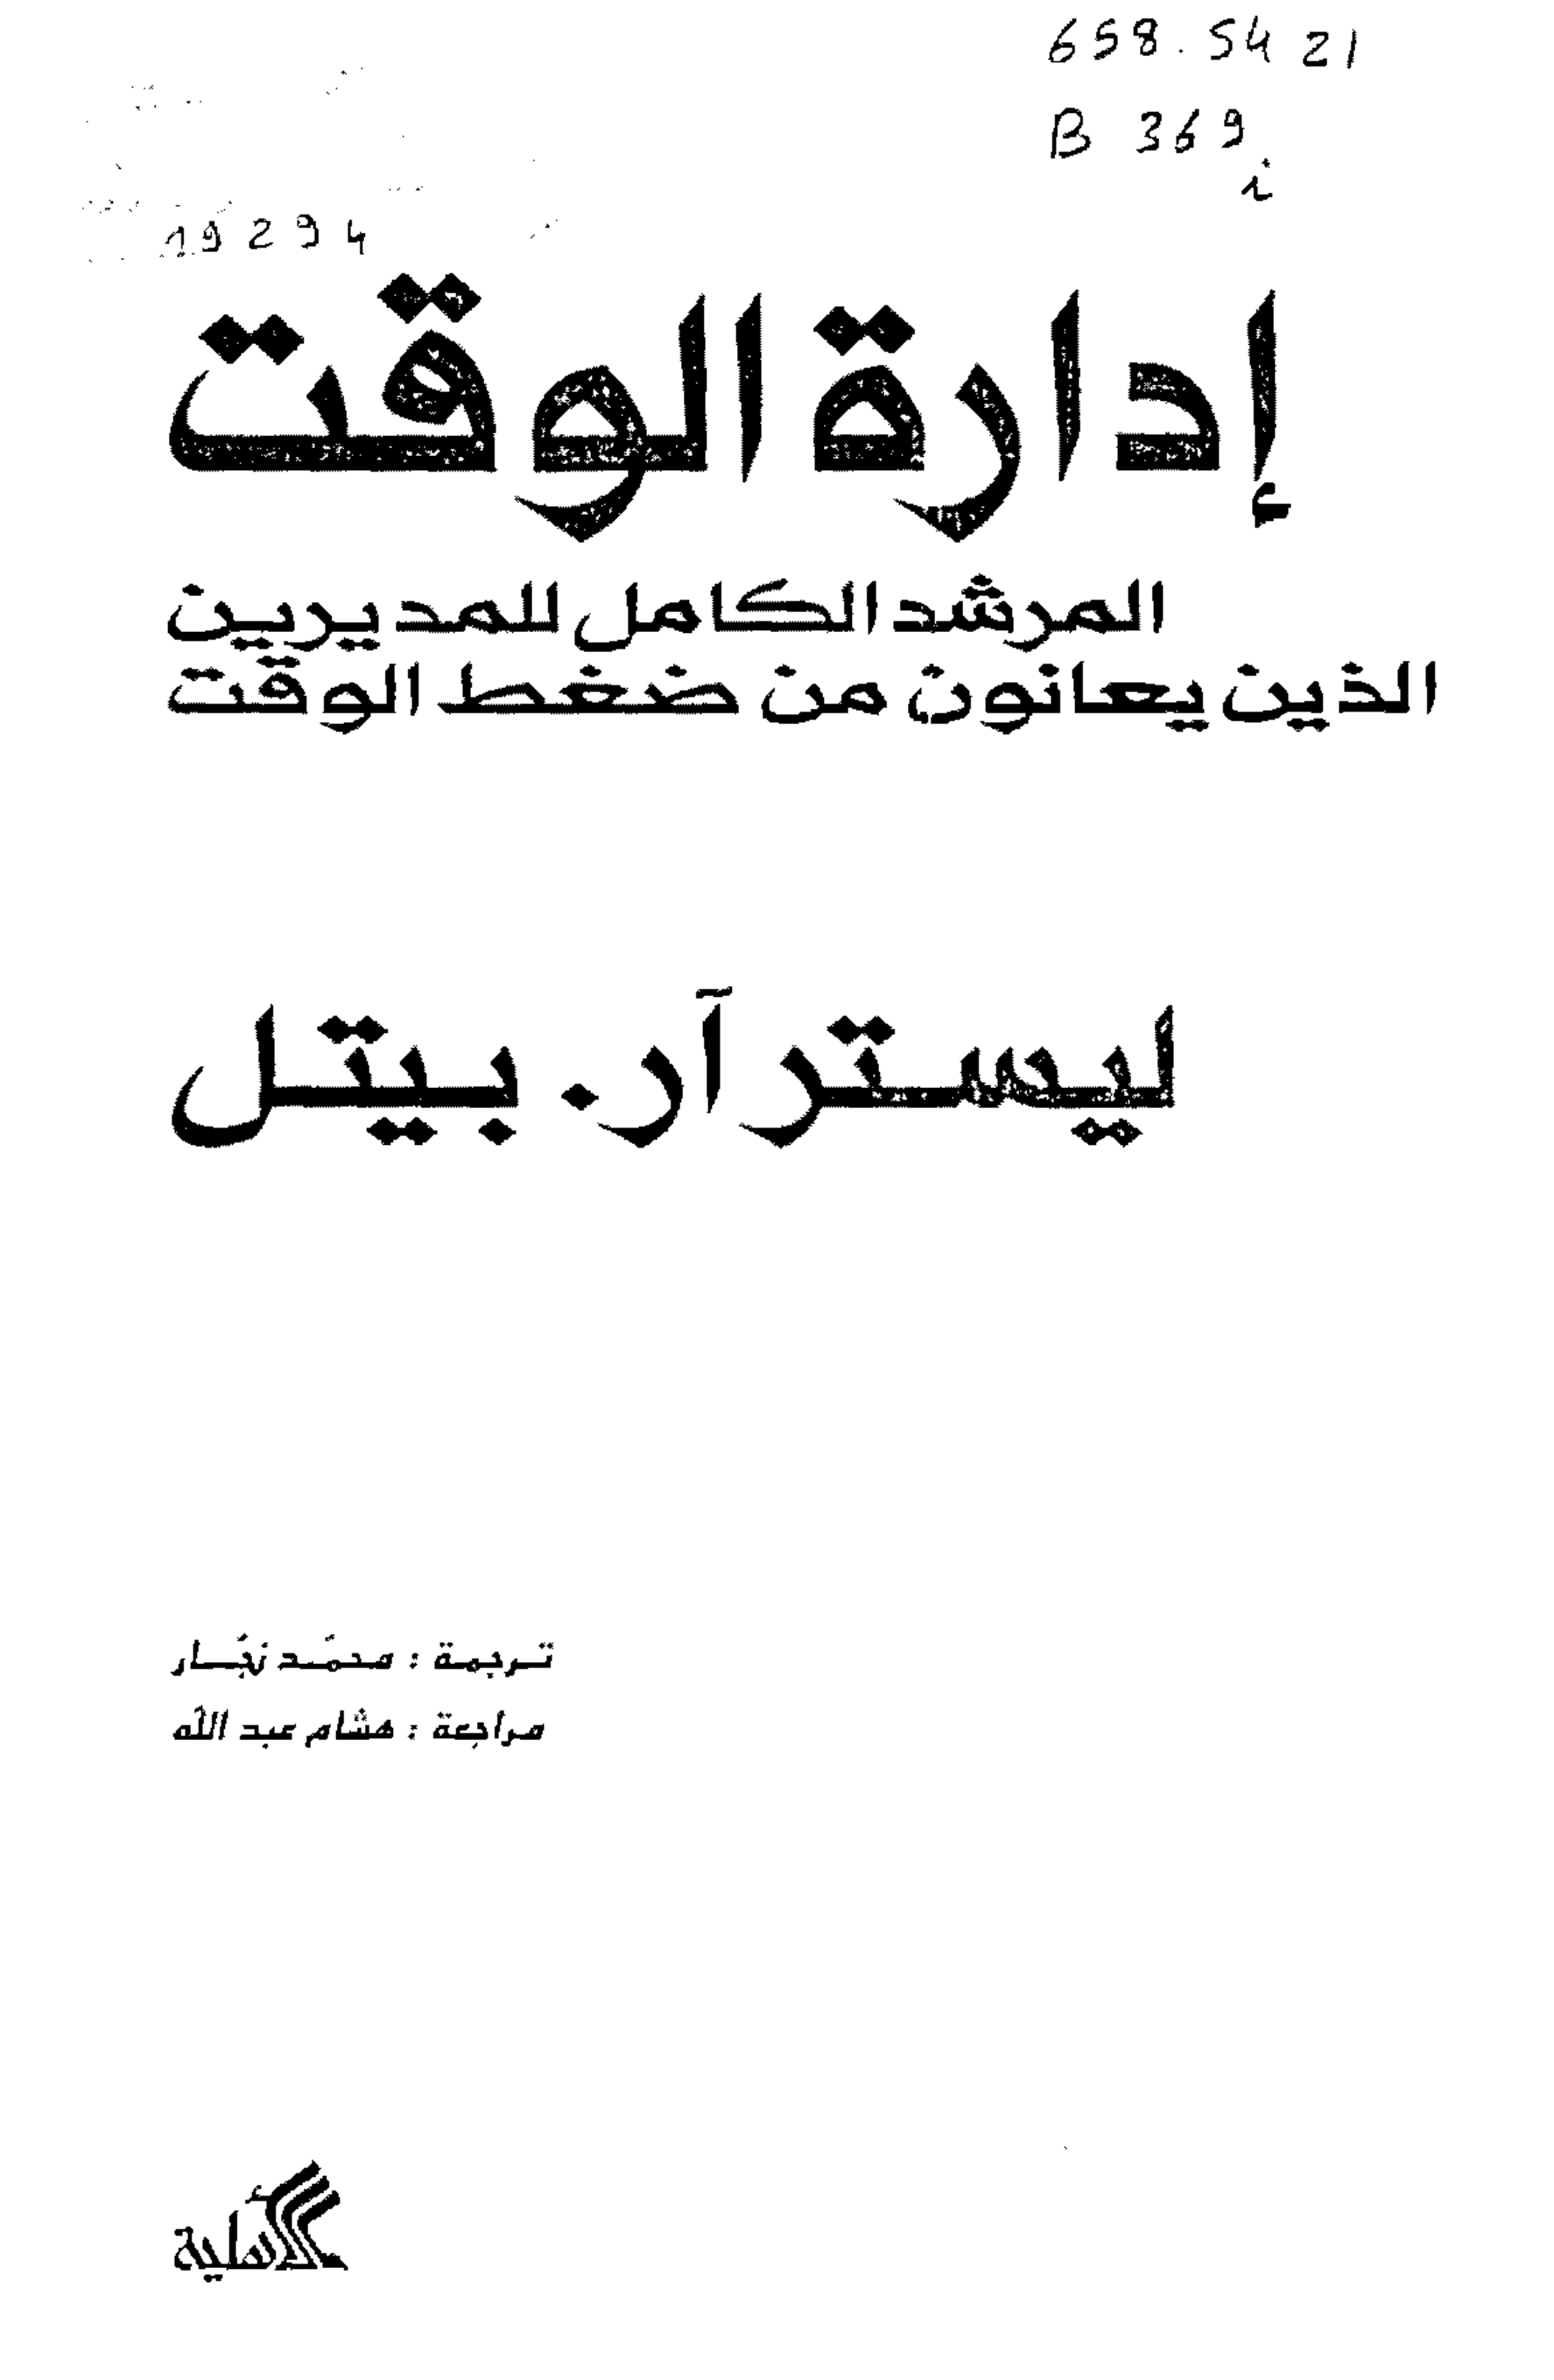 658.5421
B 369
i
19294
إدارة الوقت
المرشد الكامل للمديرين
الذين يعانون من ضغط الوقت
ليستر آر. بيتل
ترجمة : محمّد نجّار
مراجعة : هشام عبد الله
الأهلية